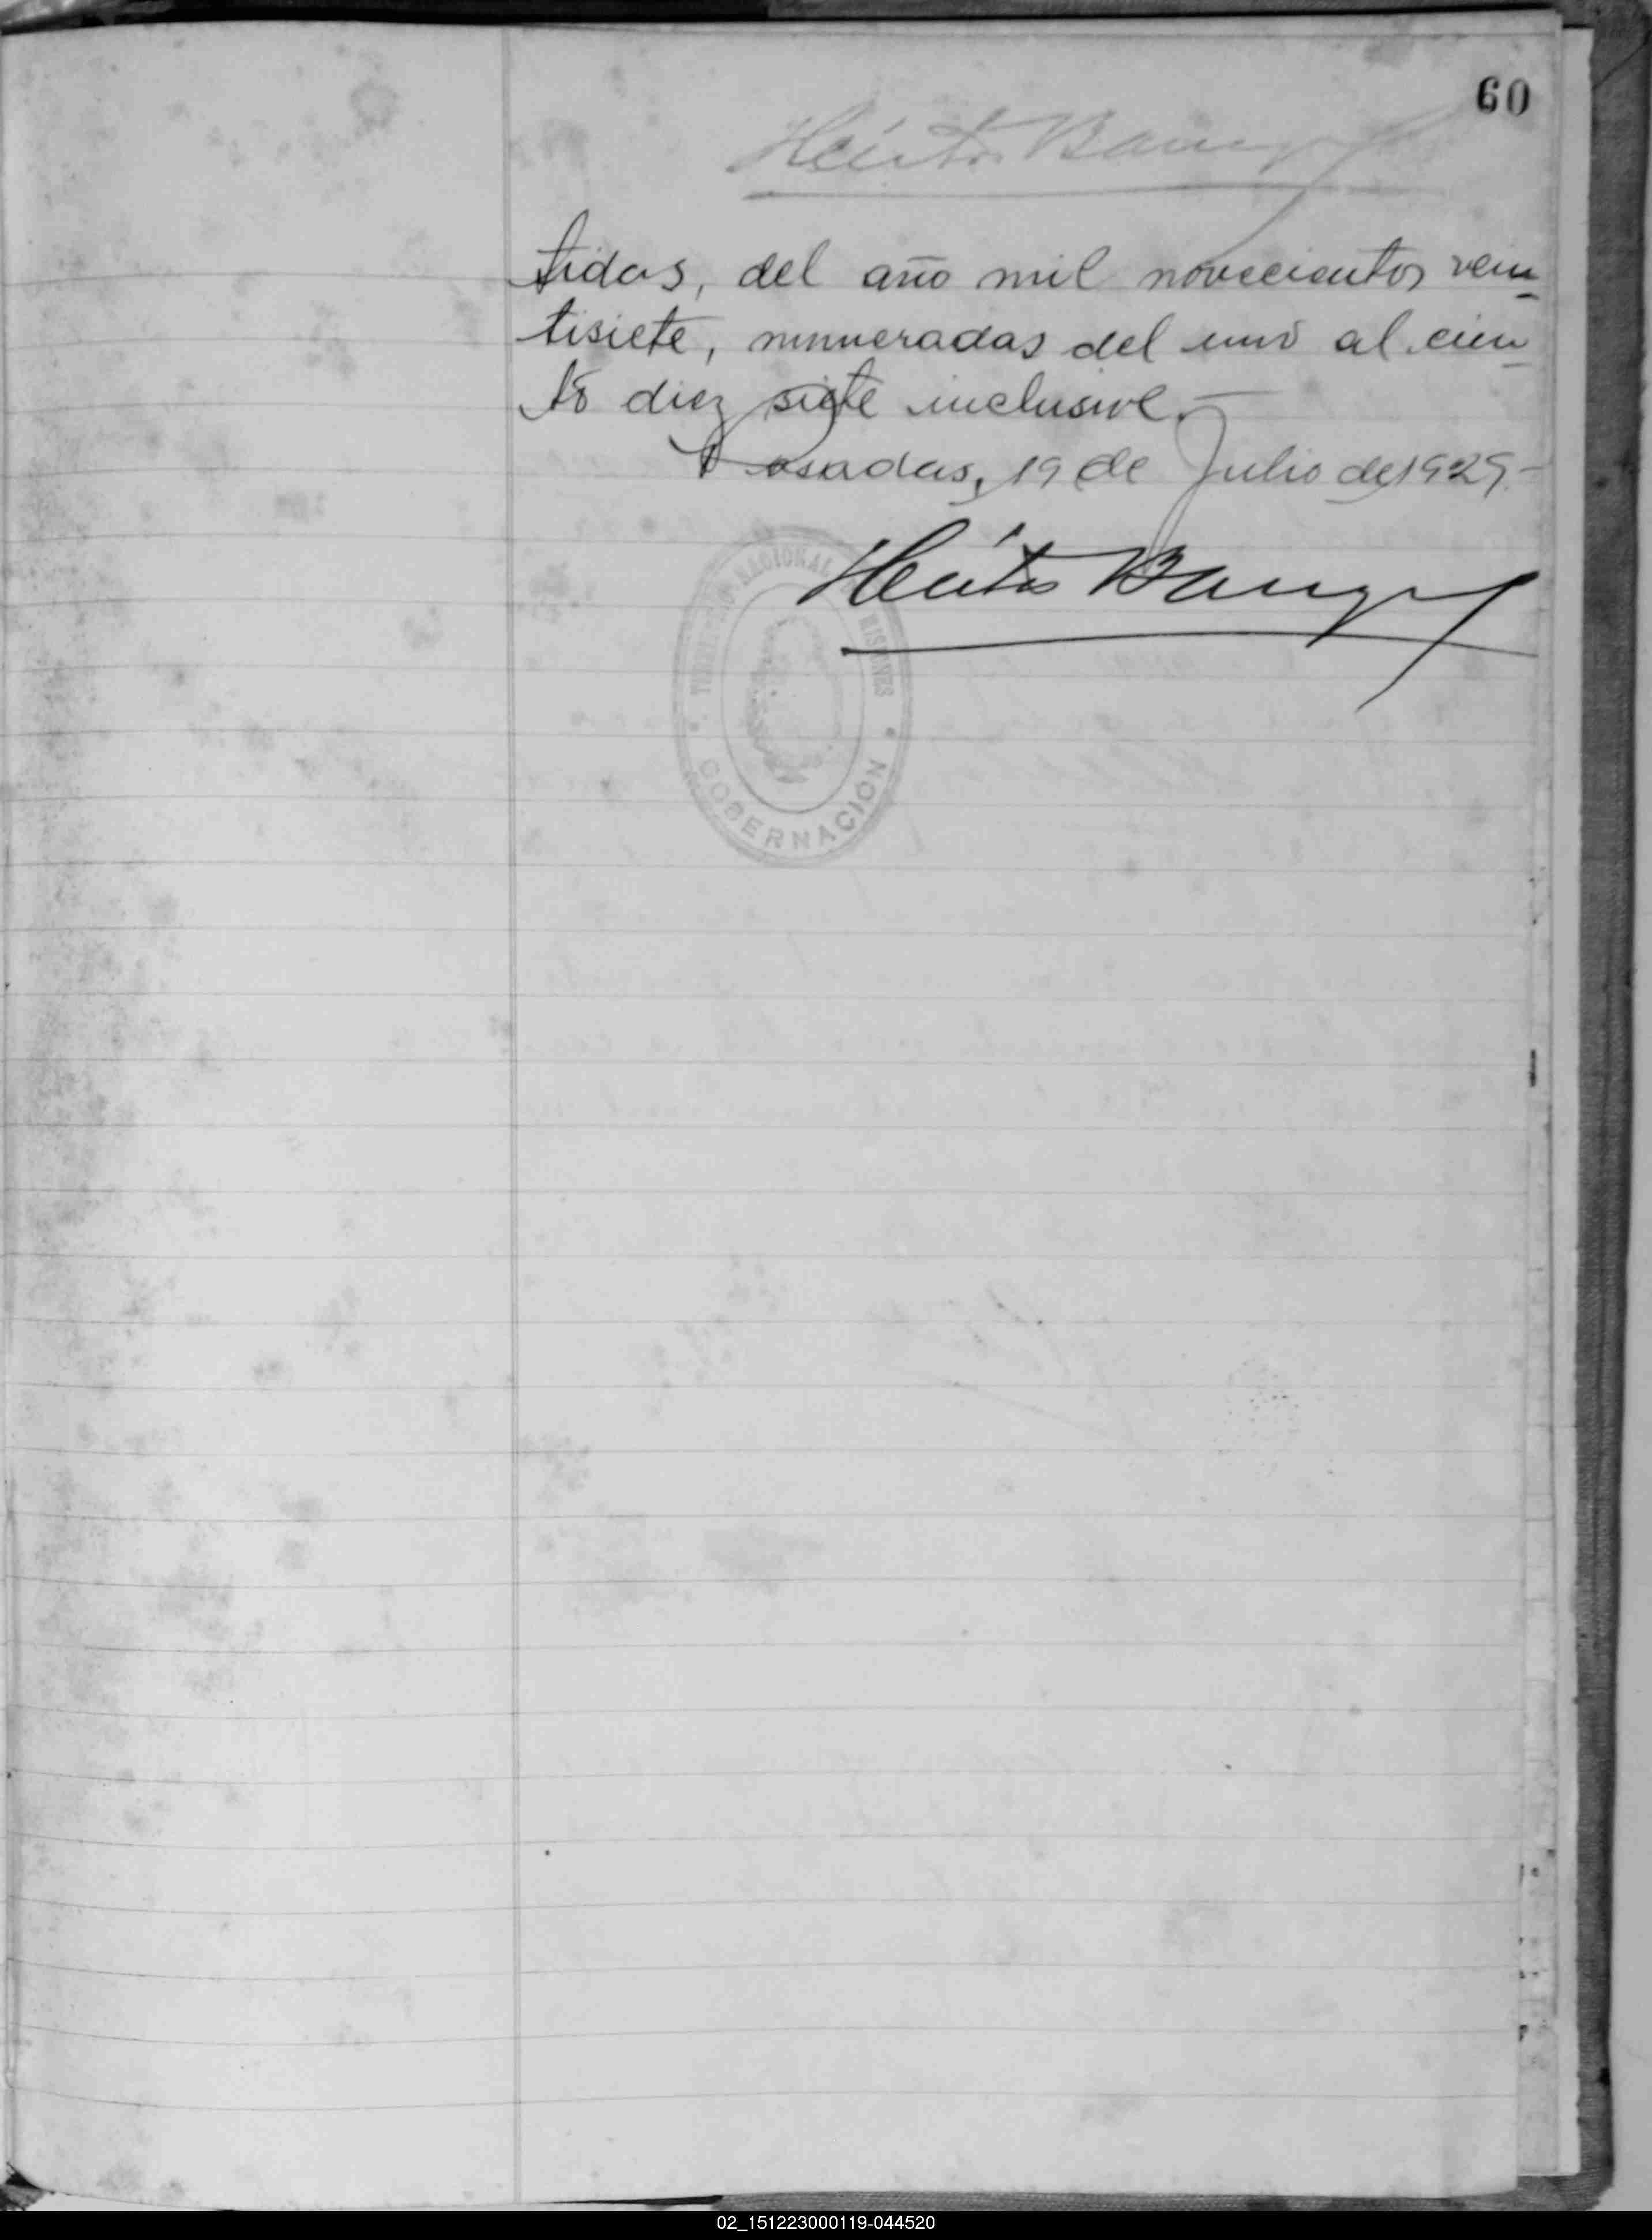 60
Héctor Barreyro
tidas, del año mil novecientos vein
tisiete, numeradas del uno al cien
to diez siete inclusive.—
Posadas, 19 de Julio de 1929.—
Héctor Barreyro
TERRITORIO NACIONAL MISIONES
GOBERNACION
02_151223000119-044520